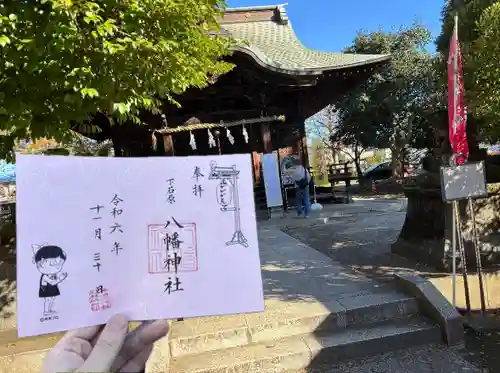 奉拝
下石原
八幡神社
令和六年
十一月三十日